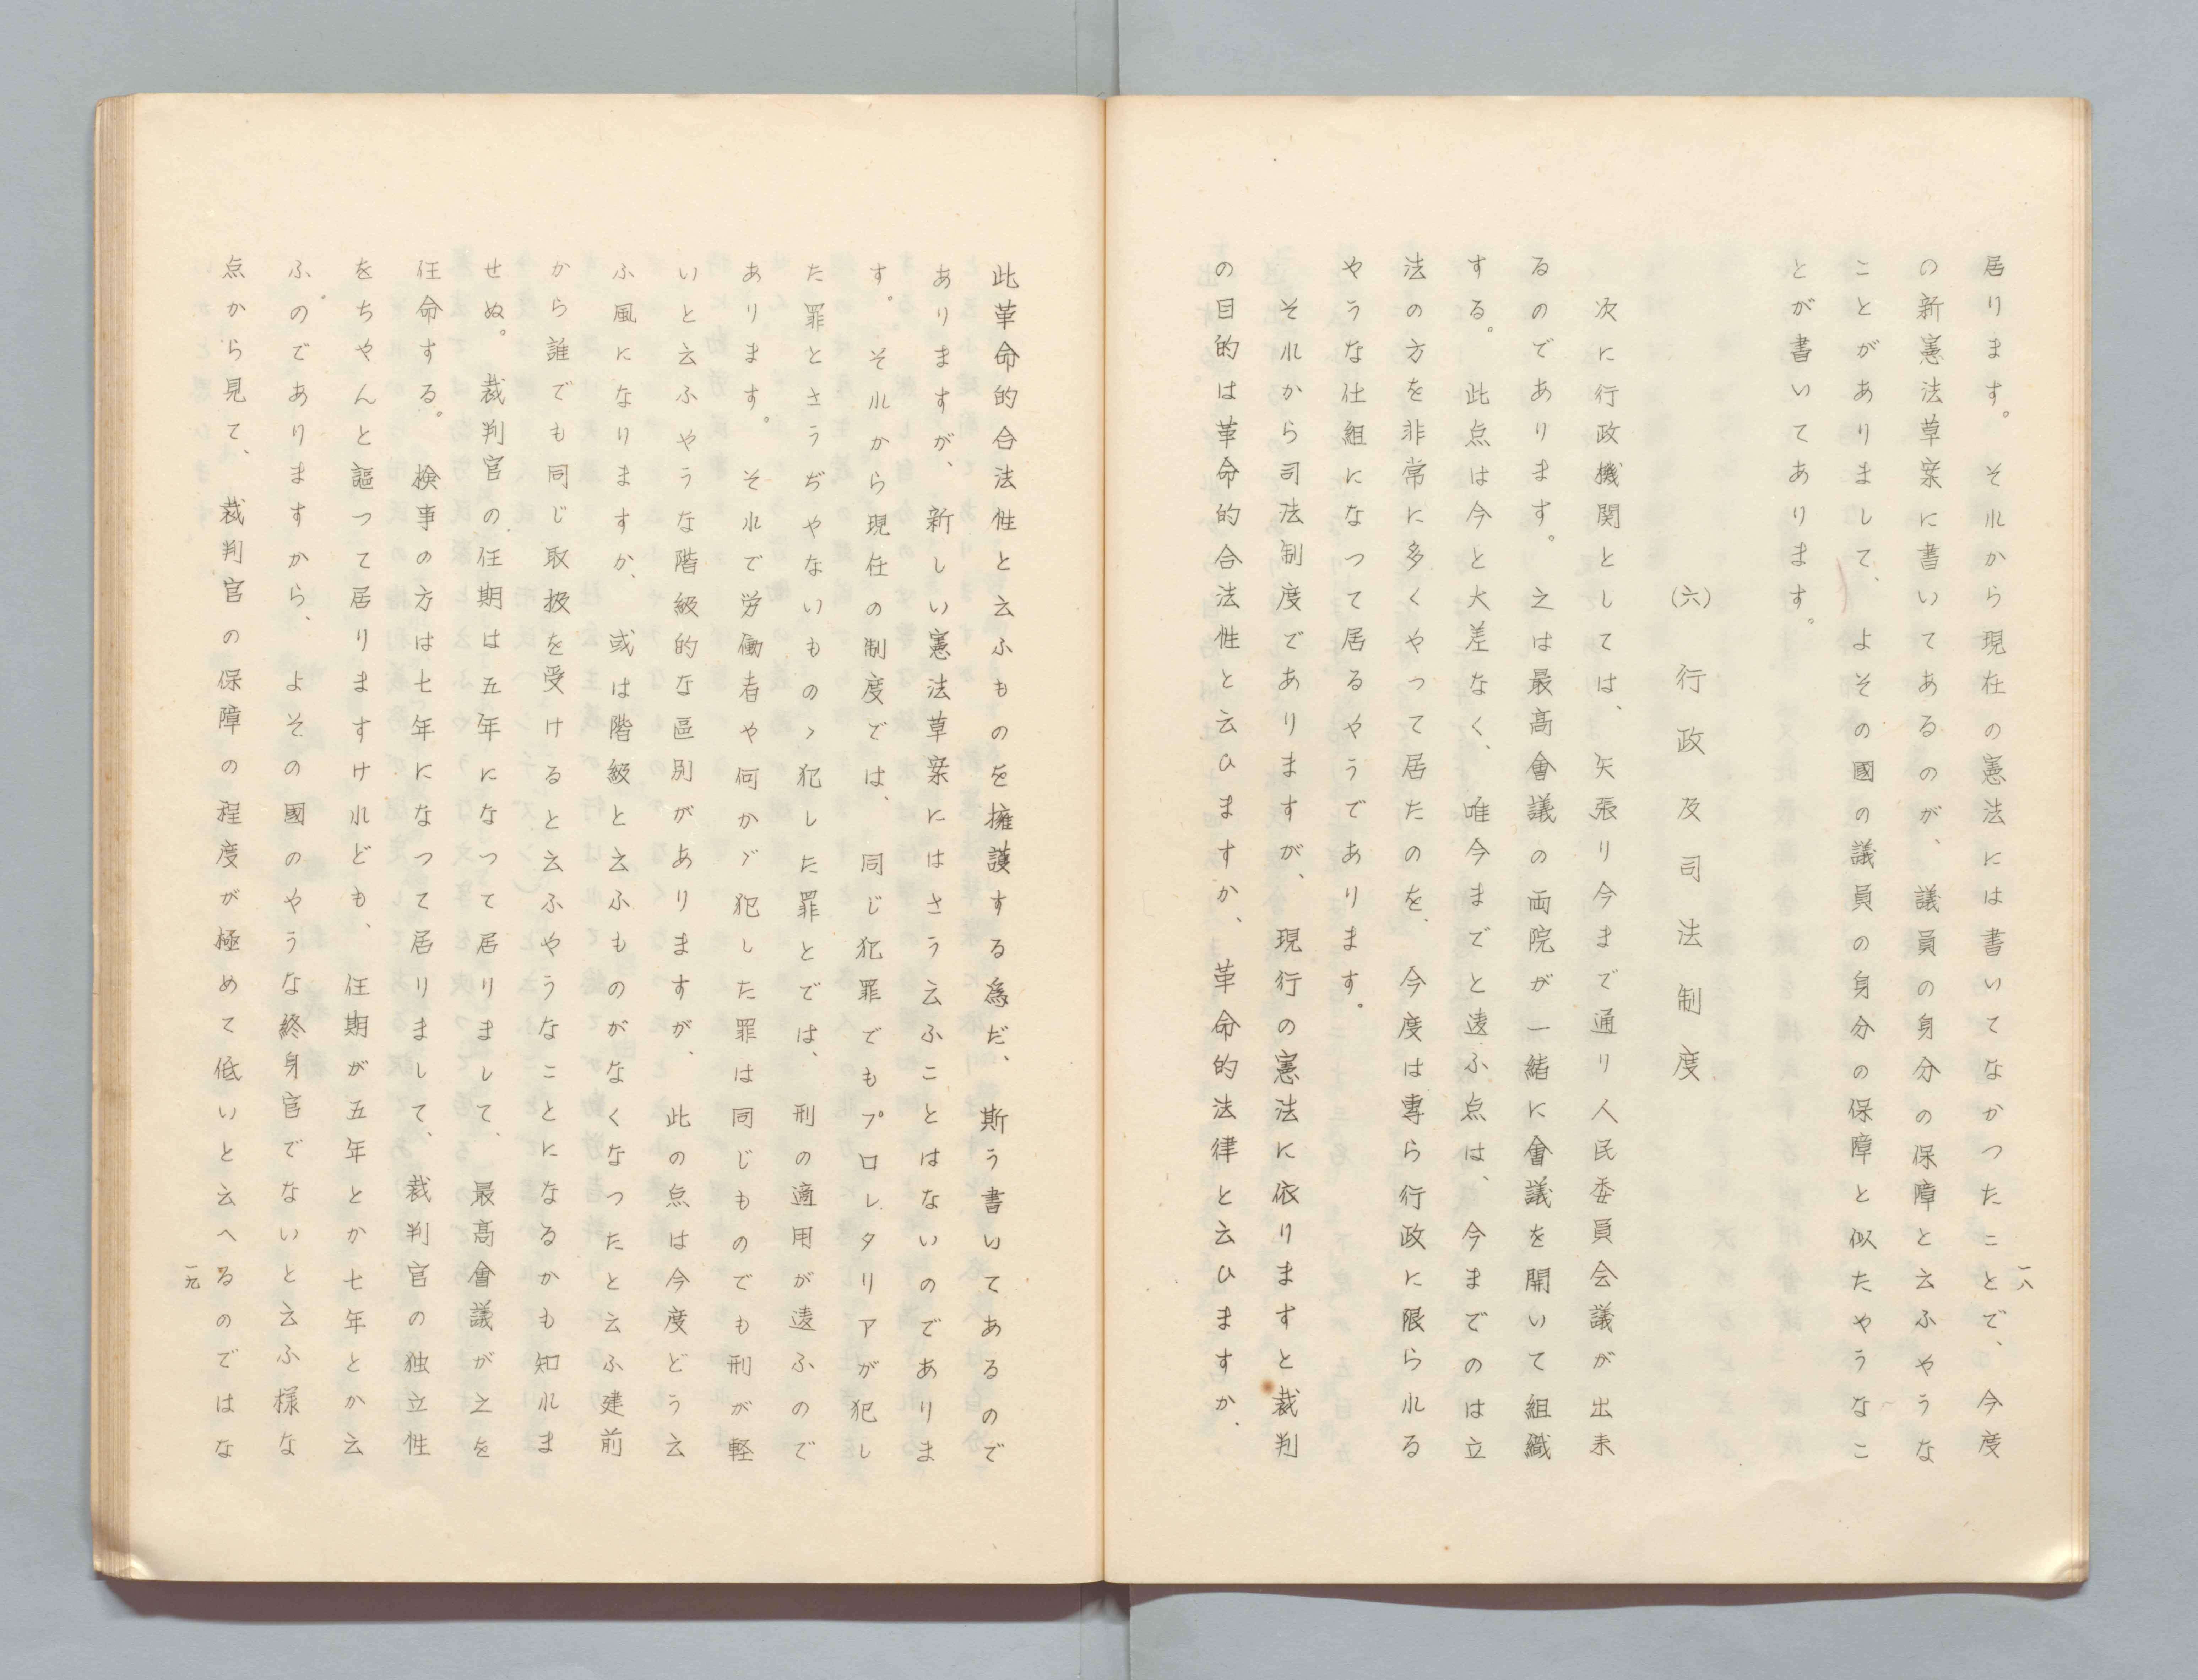 居ります。それから現在の憲法には書いてなかつたことで、今度
の新憲法草案に書いてあるのが、議員の身分の保障と云ふやうな
ことがありまして、よその國の議員の身分の保障と似たやうなこ
とが書いてあります。
(六) 行政及司法制度
次に行政機関としては、矢張り今まで通り人民委員会議が出来
るのであります。之は最高會議の両院が一緒に會議を開いて組織
する。此点は今と大差なく、唯今までと違ふ点は、今までのは立
法の方を非常に多くやつて居たのを、今度は専ら行政に限られる
やうな仕組になつて居るやうであります。
それから司法制度でありますが、現行の憲法に依りますと裁判
の目的は革命的合法性と云ひますか、革命的法律と云ひますか、
一八
此革命的合法性と云ふものを擁護する為だ、斯う書いてあるので
ありますが、新しい憲法草案にはさう云ふことはないのでありま
す。それから現在の制度では、同じ犯罪でもプロレタリアが犯し
た罪とさうぢやないものゝ犯した罪とでは、刑の適用が違ふので
あります。それで労働者や何かゞ犯した罪は同じものでも刑が軽
いと云ふやうな階級的な區別がありますが、此の点は今度どう云
ふ風になりますか、或は階級と云ふものがなくなつたと云ふ建前
から誰でも同じ取扱を受けると云ふやうなことになるかも知れま
せぬ。裁判官の任期は五年になつて居りまして、最高會議が之を
任命する。検事の方は七年になつて居りまして、裁判官の独立性
をちやんと謳つて居りますけれども、任期が五年とか七年とか云
ふのでありますから、よその國のやうな終身官でないと云ふ様な
点から見て、裁判官の保障の程度が極めて低いと云へるのではな
一九